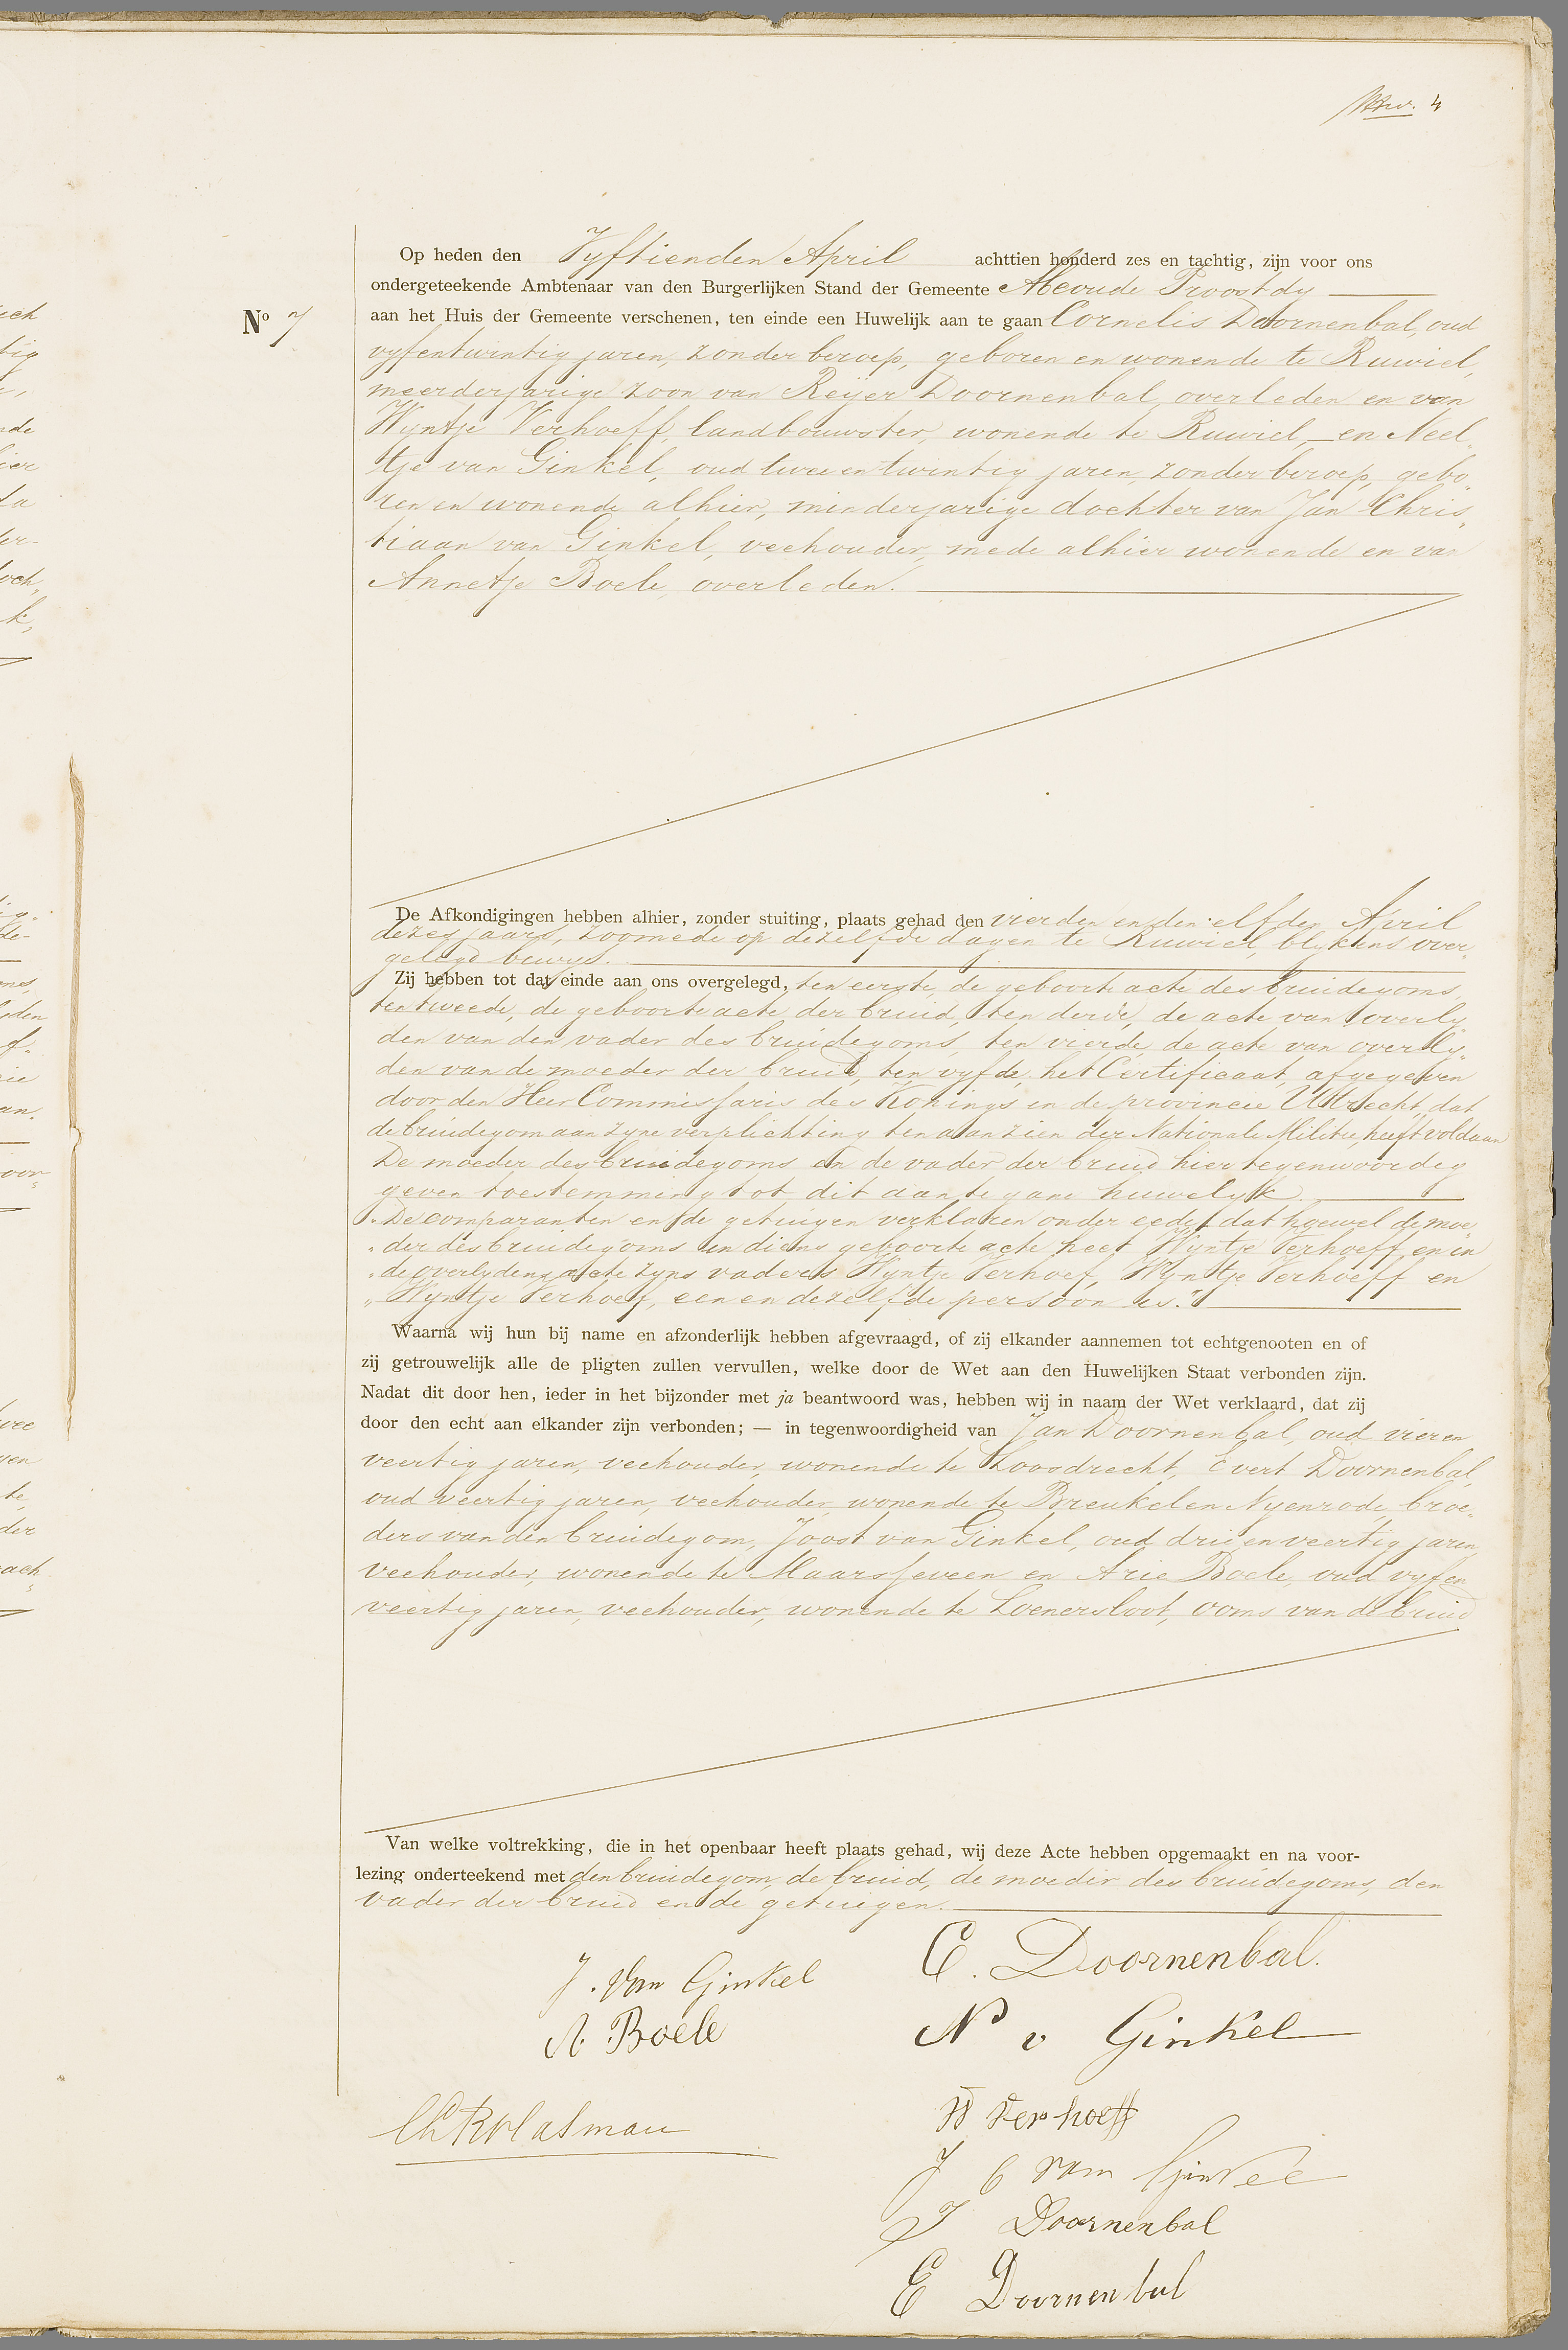 Huw. 4
Op heden den Vyftienden April achttien honderd zes en tachtig, zijn voor ons
ondergeteekende Ambtenaar van den Burgerlijken Stand der Gemeente Abcoude Proostdy
Nº 7
aan het Huis der Gemeente verschenen, ten einde een Huwelijk aan te gaan Cornelis Doornenbal, oud
vyfentwintig jaren, zonder beroep, geboren en wonende te Ruwiel,
meerderjarige zoon van Reijer Doornenbal, overleden en van
Wyntje Verhoeff, landbouwster, wonende te Ruwiel, en Neel„
tje van Ginkel, oud twee en twintig jaren, zonder beroep, gebo„
ren en wonende alhier, minderjarige dochter van Jan Chris„
tiaan van Ginkel, veehouder, mede alhier wonende en van
Annetje Boele, overleden.
De Afkondigingen hebben alhier, zonder stuiting, plaats gehad den vierden en den elfden April
dezes jaars, zoomede op dezelfde dagen te Ruwiel, blykens over„
gelegd bewys.
Zij hebben tot dat einde aan ons overgelegd, ten eerste, de geboorte acte des bruidegoms,
ten tweede, de geboorte acte der bruid, ten derde, de acte van overly„
den van den vader des bruidegoms, ten vierde, de acte van overly„
den van de moeder der bruid, ten vyfde, het Certificaat, afgegeven
door den Heer Commissaris des Konings in de provincie Utrecht, dat
de bruidegom aan zyne verplichting ten aanzien der Nationale Militie, heeft voldaan
De moeder des bruidegoms en de vader der bruid hier tegenwoordig
geven toestemming tot dit aan te gane huwelyk.
„De comparanten en de getuigen verklaren onder eede, dat hoewel de moe„
„der des bruidegoms in diens geboorte acte heet Wyntje Verhoeff, en in
„de overlydens acte zyns vaders Wyntje Verhoef, Wyntje Verhoeff en
„Wyntje Verhoef, een en dezelfde persoon is."
Waarna wij hun bij name en afzonderlijk hebben afgevraagd, of zij elkander aannemen tot echtgenooten en of
zij getrouwelijk alle de pligten zullen vervullen, welke door de Wet aan den Huwelijken Staat verbonden zijn.
Nadat dit door hen, ieder in het bijzonder met ja beantwoord was, hebben wij in naam der Wet verklaard, dat zij
door den echt aan elkander zijn verbonden; — in tegenwoordigheid van Jan Doornenbal, oud vieren
veertig jaren, veehouder, wonende te Loosdrecht, Evert Doornenbal,
oud veertig jaren, veehouder, wonende te Breukelen Nyenrode, broe„
ders van den bruidegom, Joost van Ginkel, oud drie en veertig jaren,
veehouder, wonende te Maarsseveen en Arie Boele, oud vyfen
veertig jaren, veehouder, wonende te Loenersloot, ooms van de bruid
Van welke voltrekking, die in het openbaar heeft plaats gehad, wij deze Acte hebben opgemaakt en na voor-
lezing onderteekend met den bruidegom, de bruid, de moeder des bruidegoms, den
vader der bruid en de getuigen.
C. Doornenbal.
J. van Ginkel
N v Ginkel
A. Boele
W Verhoeff
J C van Ginkel
J Doornenbal
E Doornenbal